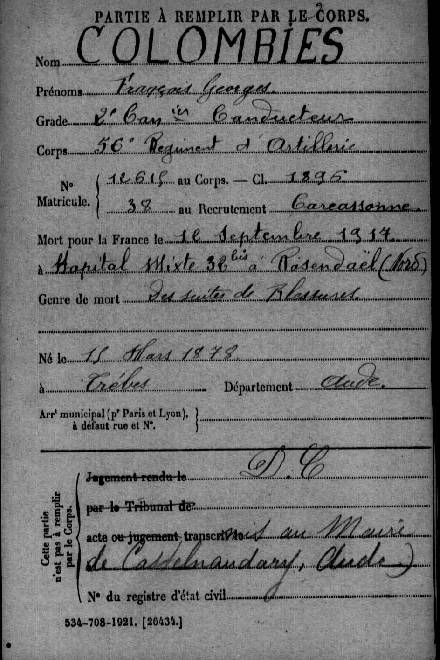 PARTIE À REMPLIR PAR LE CORPS.
Nom COLOMBIES
Prénoms François Georges
Grade 2e Can ier Conducteur
Corps 56e Régiment d'Artillerie
No Matricule. { 12615 au Corps. — Cl. 1896
38 au Recrutement Carcassonne
Mort pour la France le 12 Septembre 1917
à Hopital Mixte 32 bis à Rosendaël (Nord)
Genre de mort Des suites de Blessures
Né le 15 Mars 1878
à Trèbes Département Aude.
Arrt municipal (pr Paris et Lyon), à défaut rue et No. }
Cette partie n'est pas à remplir par le Corps.
Jugement rendu le D. C
par le Tribunal de
acte ou jugement transcrit le au Maire
de Castelnaudary, Aude)
No du registre d'état civil
534-708-1921. [26434.]